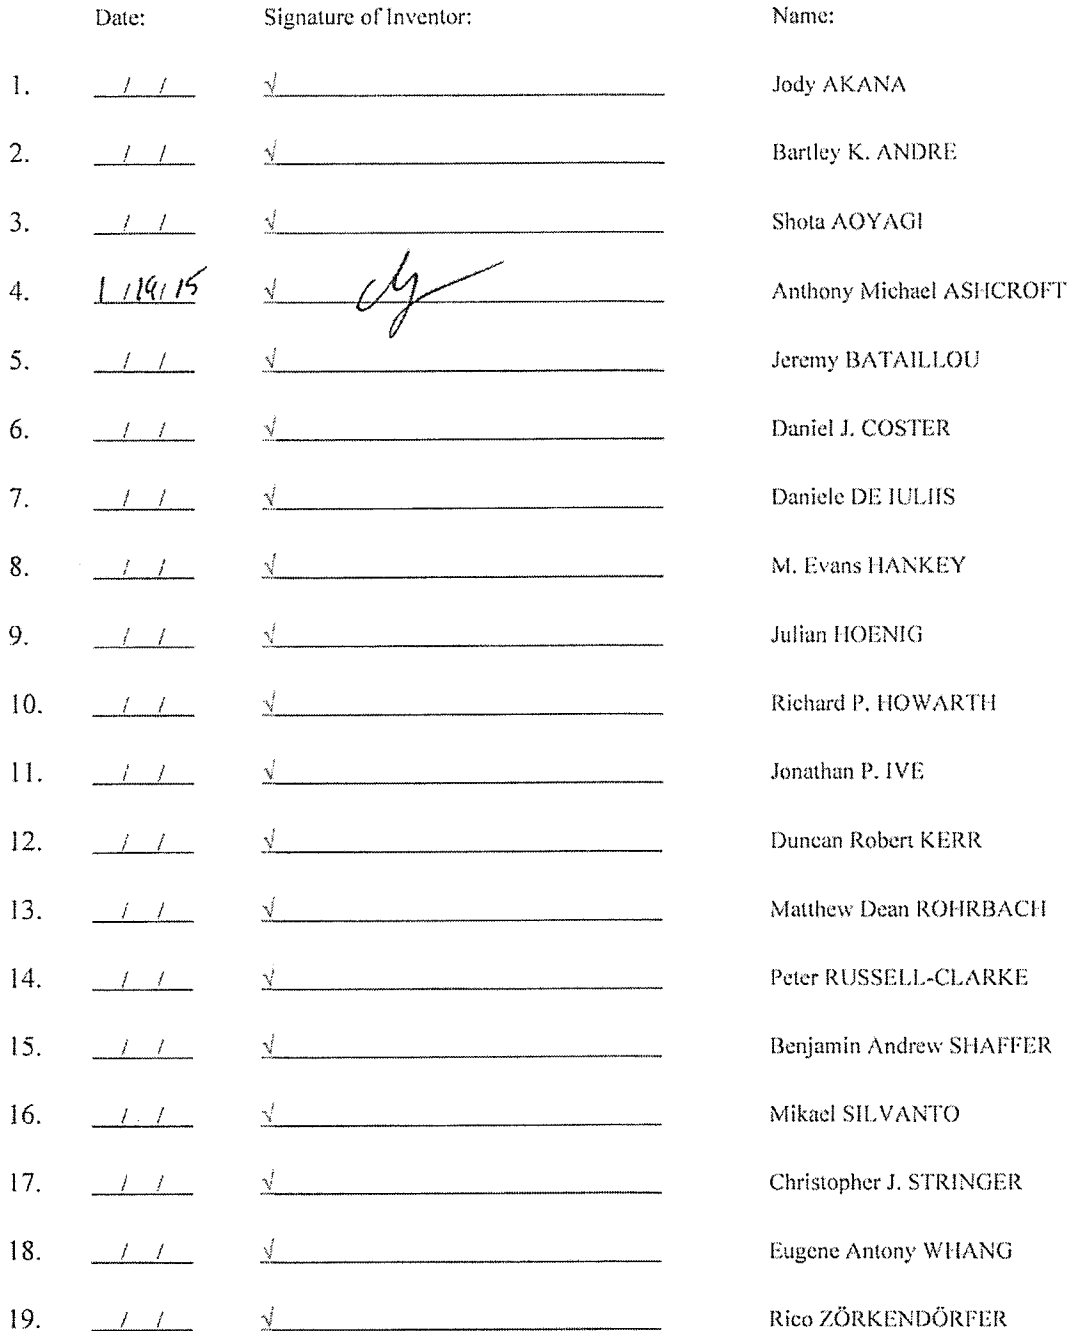 Date: Signature of Inventor: Name:
1. / / √ Jody AKANA
2. / / √ Bartley K. ANDRE
3. / / √ Shota AOYAGI
4. 1/19/15 √ Anthony Michael ASHCROFT
5. / / √ Jeremy BATAILLOU
6. / / √ Daniel J. COSTER
7. / / √ Daniele DE IULIIS
8. / / √ M. Evans HANKEY
9. / / √ Julian HOENIG
10. / / √ Richard P. HOWARTH
11. / / √ Jonathan P. IVE
12. / / √ Duncan Robert KERR
13. / / √ Matthew Dean ROHRBACH
14. / / √ Peter RUSSELL-CLARKE
15. / / √ Benjamin Andrew SHAFFER
16. / / √ Mikael SILVANTO
17. / / √ Christopher J. STRINGER
18. / / √ Eugene Antony WHANG
19. / / √ Rico ZÖRKENDÖRFER